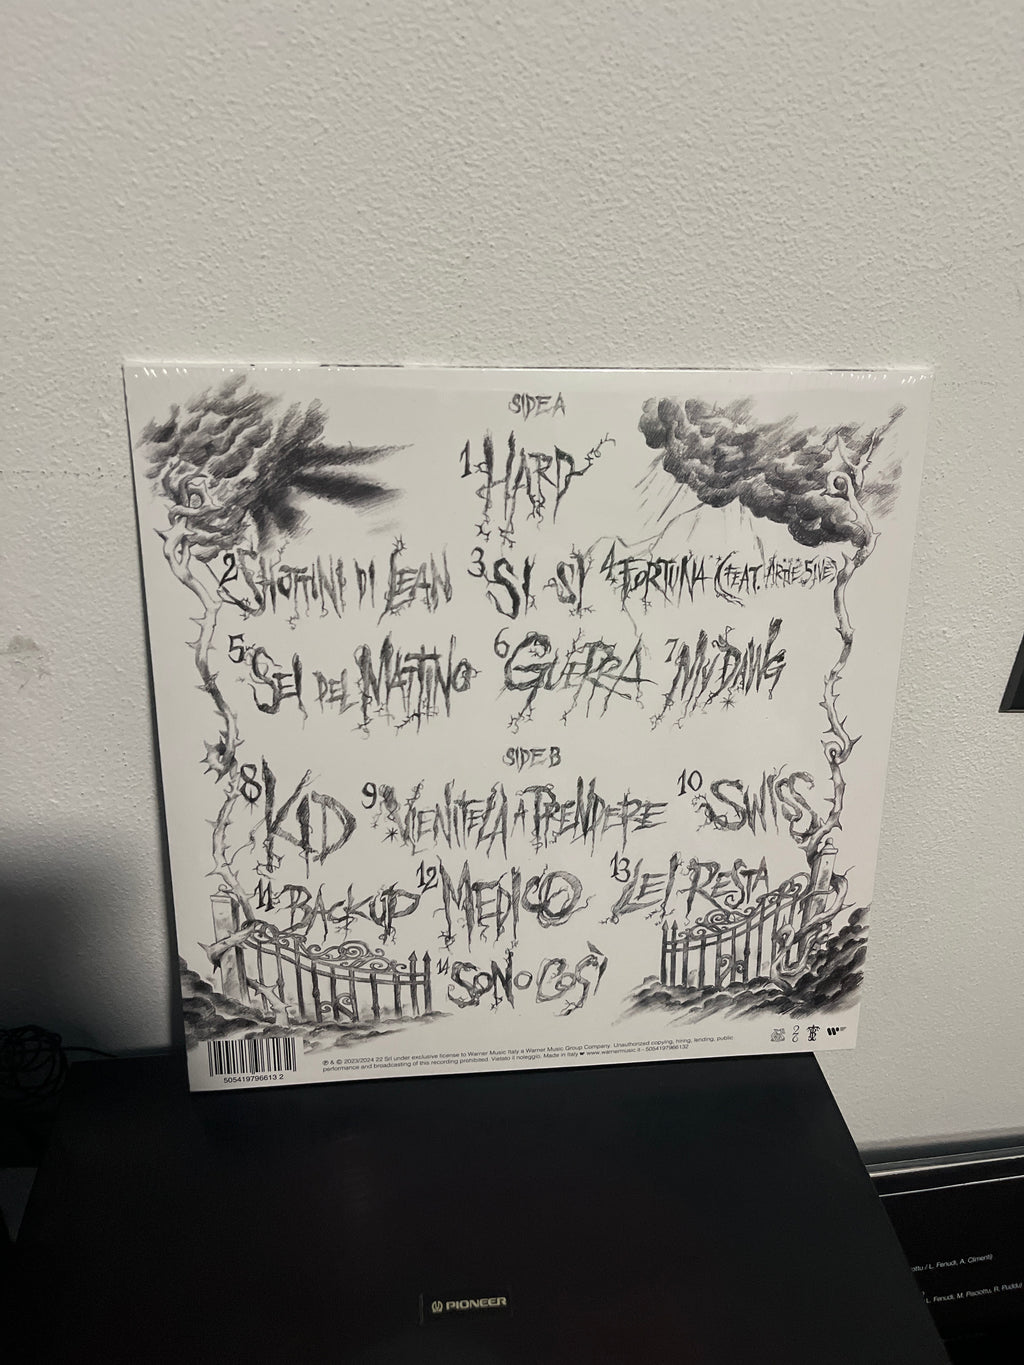 SIDE A
1 HARD
2 SHOTTINI DI LEAN 3 SI SÌ 4 FORTUNA (FEAT. ARTIE 5IVE)
5 SEI DEL MATTINO 6 GUERRA 7 MY DAWG
SIDE B
8 KID 9 VIENITELA A PRENDERE 10 SWISS
11 BACKUP 12 MEDICO 13 LEI RESTA
14 SONO COSÌ
℗ & © 2023/2024 22 Srl under exclusive license to Warner Music Italy a Warner Music Group Company. Unauthorized copying, hiring, lending, public
performance and broadcasting of this recording prohibited. Vietato il noleggio. Made in Italy www.warnermusic.it - 5054197966132
5 054197 96613 2
PIONEER
/ L. Fenudi, A. Climenti)
L. Fenudi, M. Pisciottu, R. Puddu)